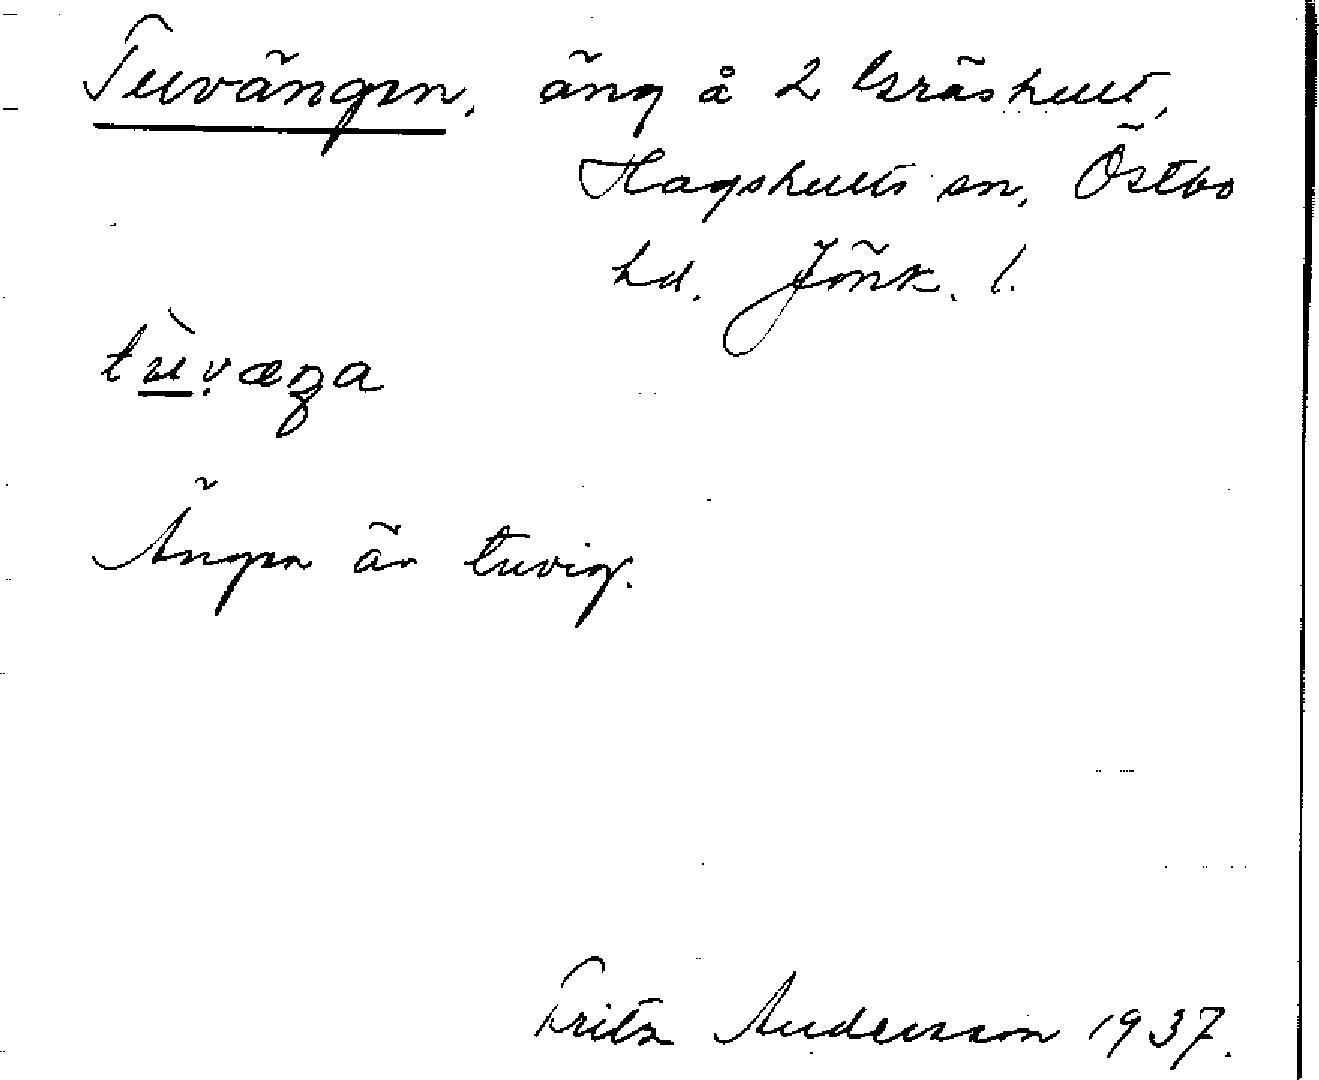 Tuvängen, äng å 2 Gräshult,
Hagshults sn, Östbo
hd. Jönk. l.
tùvæŋa
Ängen är tuvig.
Fritz Andersson 1937.